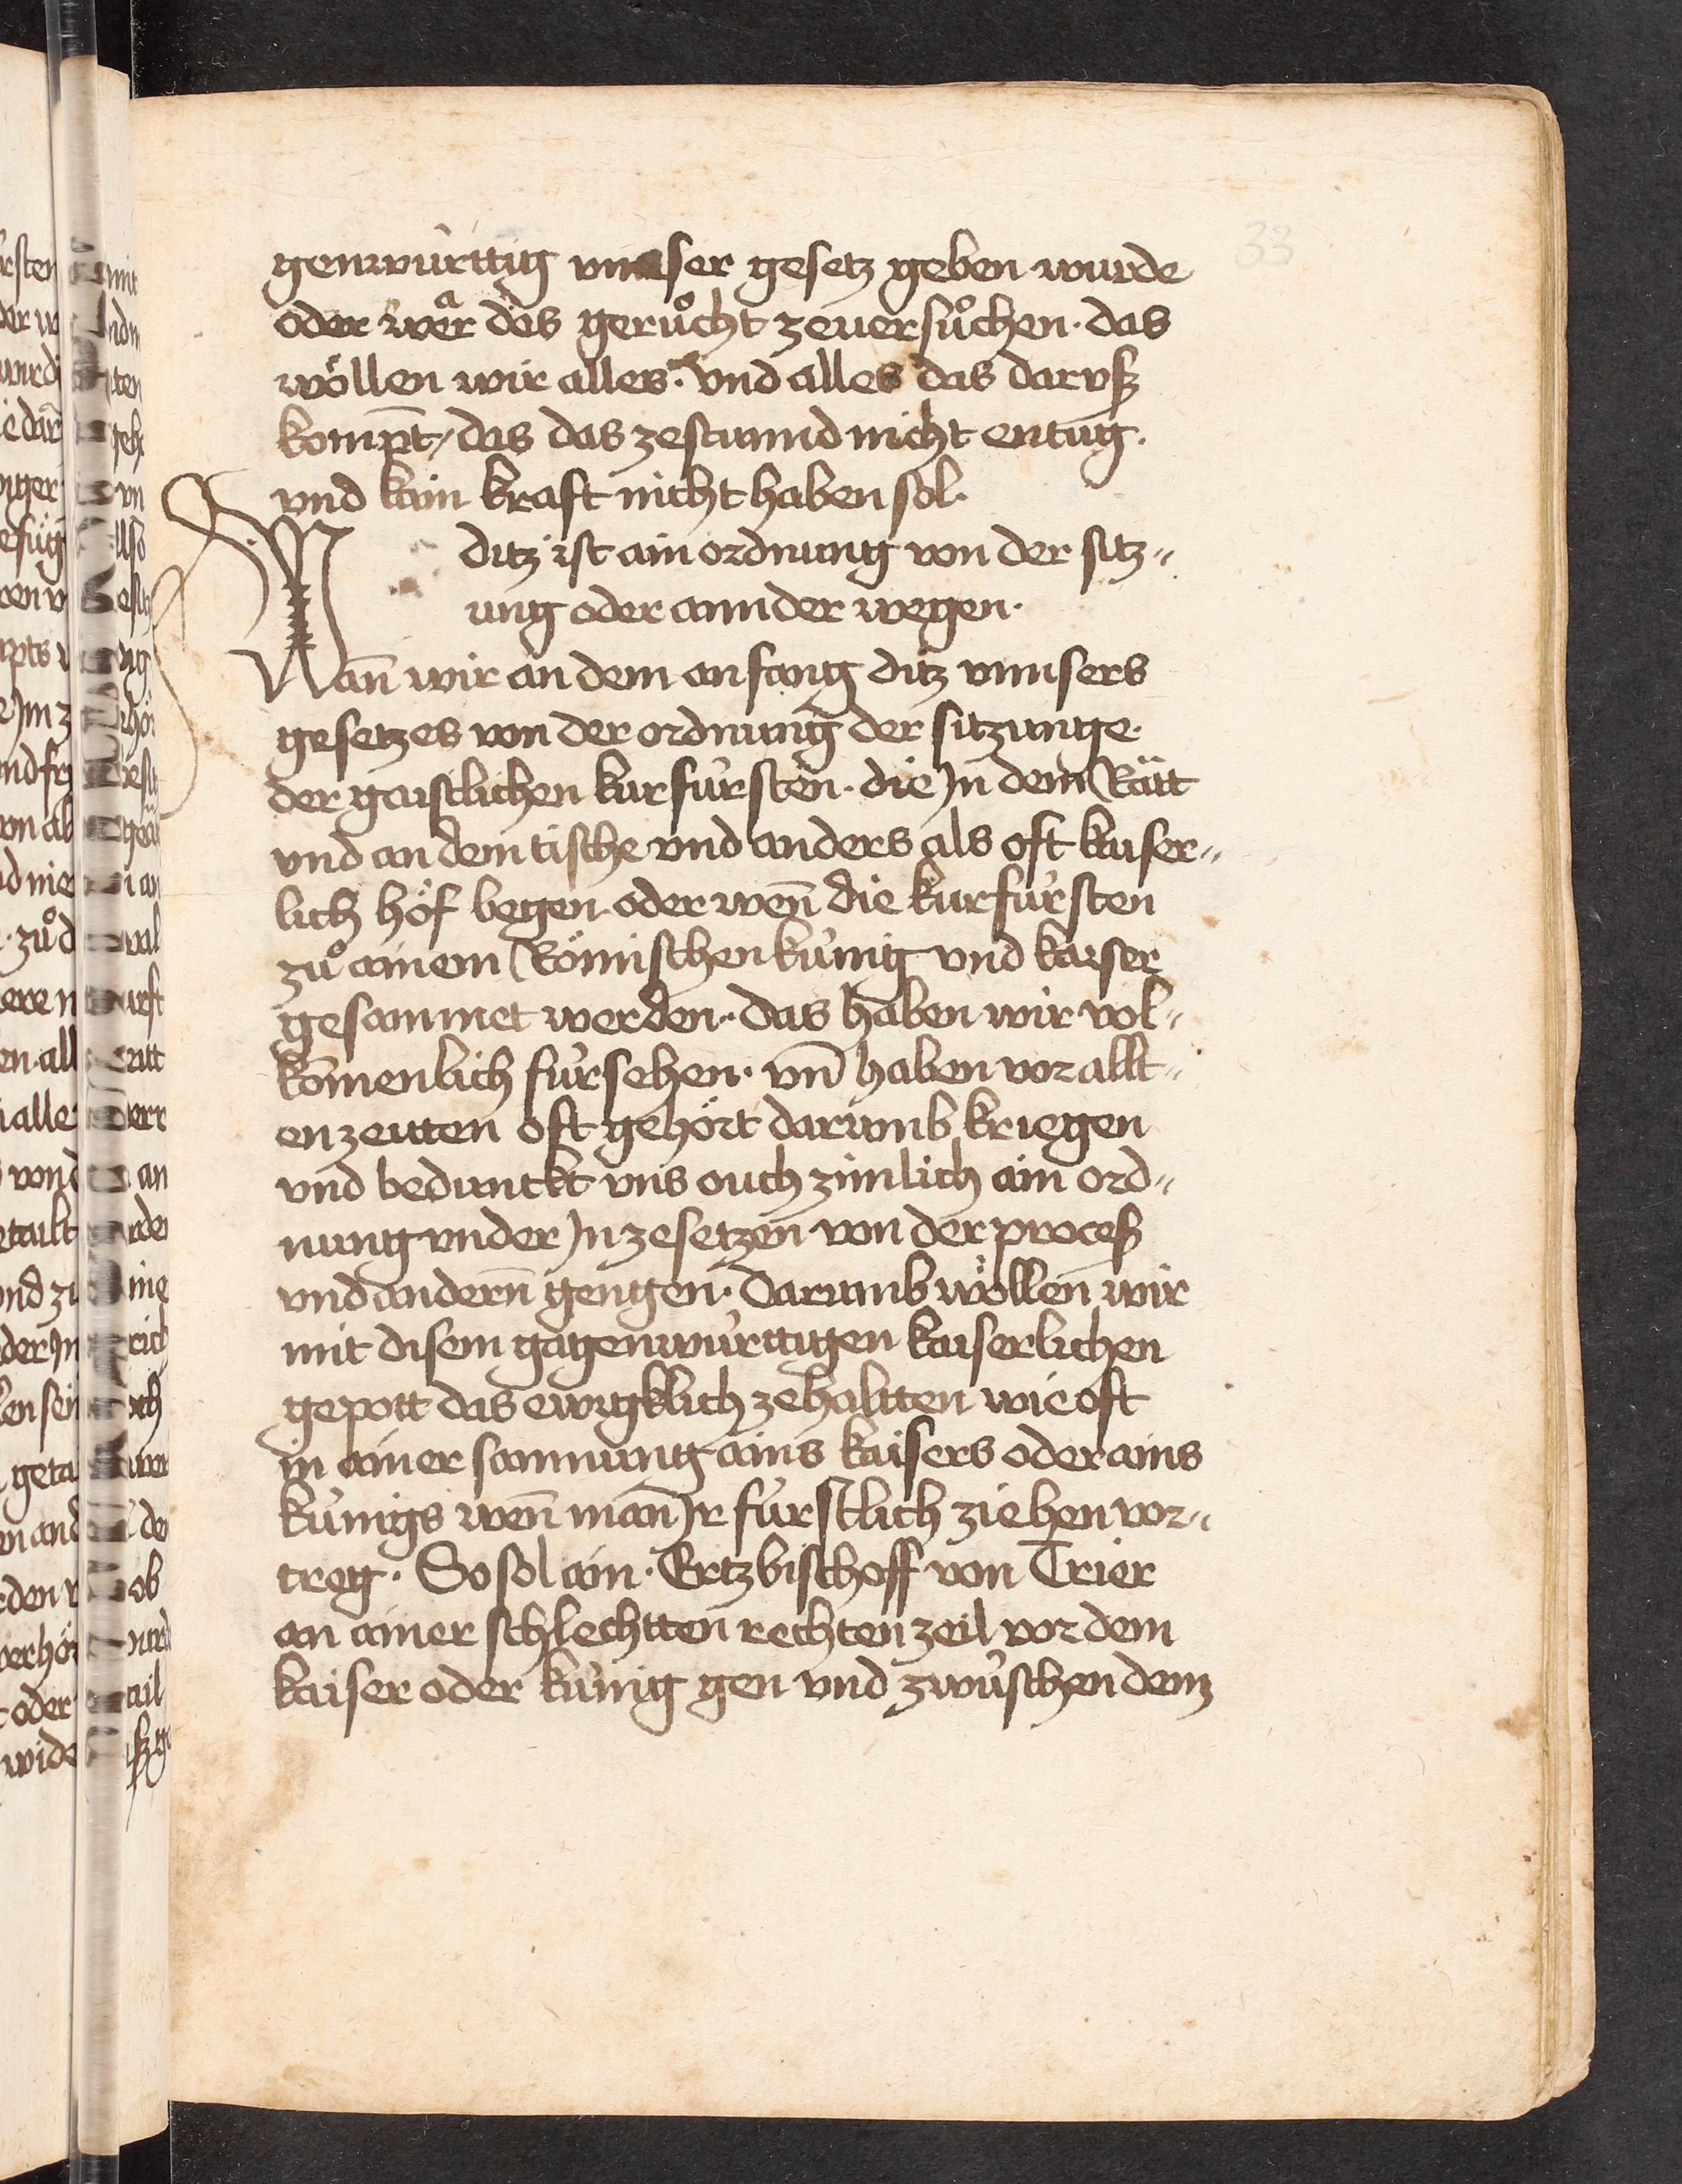 33
genwürttig vnnser gesetz geben wurde
oder wär das gerůcht zeuersůchen · das
wöllen wir alles · vnd alles das darvß
kompt / das das zestunnd nicht entüg ·
vnd kain kraft nicht haben sol ·
ditz ist ain ordnung von der sitz„
ung oder annder wegen ·
Wañ wir an dem anfang ditz vnnsers
gesetzes von der ordnung der sitzunge ·
der gaistlichen kurfürsten · die Jn dem Rätt
vnd an dem tische vnd anders als oft kaiser„
lich höf begen oder weñ die kurfürsten
zů ainem Römischen künig vnd kaiser
gesammet werden · das haben wir vol„
komenlich fürsehen · vñ haben vor allt„
en zeitten oft gehört darumb kriegen
vnd bedunckt vns ouch zimlich ain ord„
nung vnder Jn zesetzen von der proceß
vnd anderñ gengen · Darumb wöllen wir
mit disem gagenwürttigen kaiserlichen
gepott das ewigklich zehaltten wie oft
in ainer samnung ains kaisers oder ains
künigs weñ mañ Jr fürstlich ziehen vor„
treg · So sol ain · Ertzbischoff von Trier
an ainer schlechtten rechten zeil vor dem
kaiser oder künig gen vnd zwüschen dem